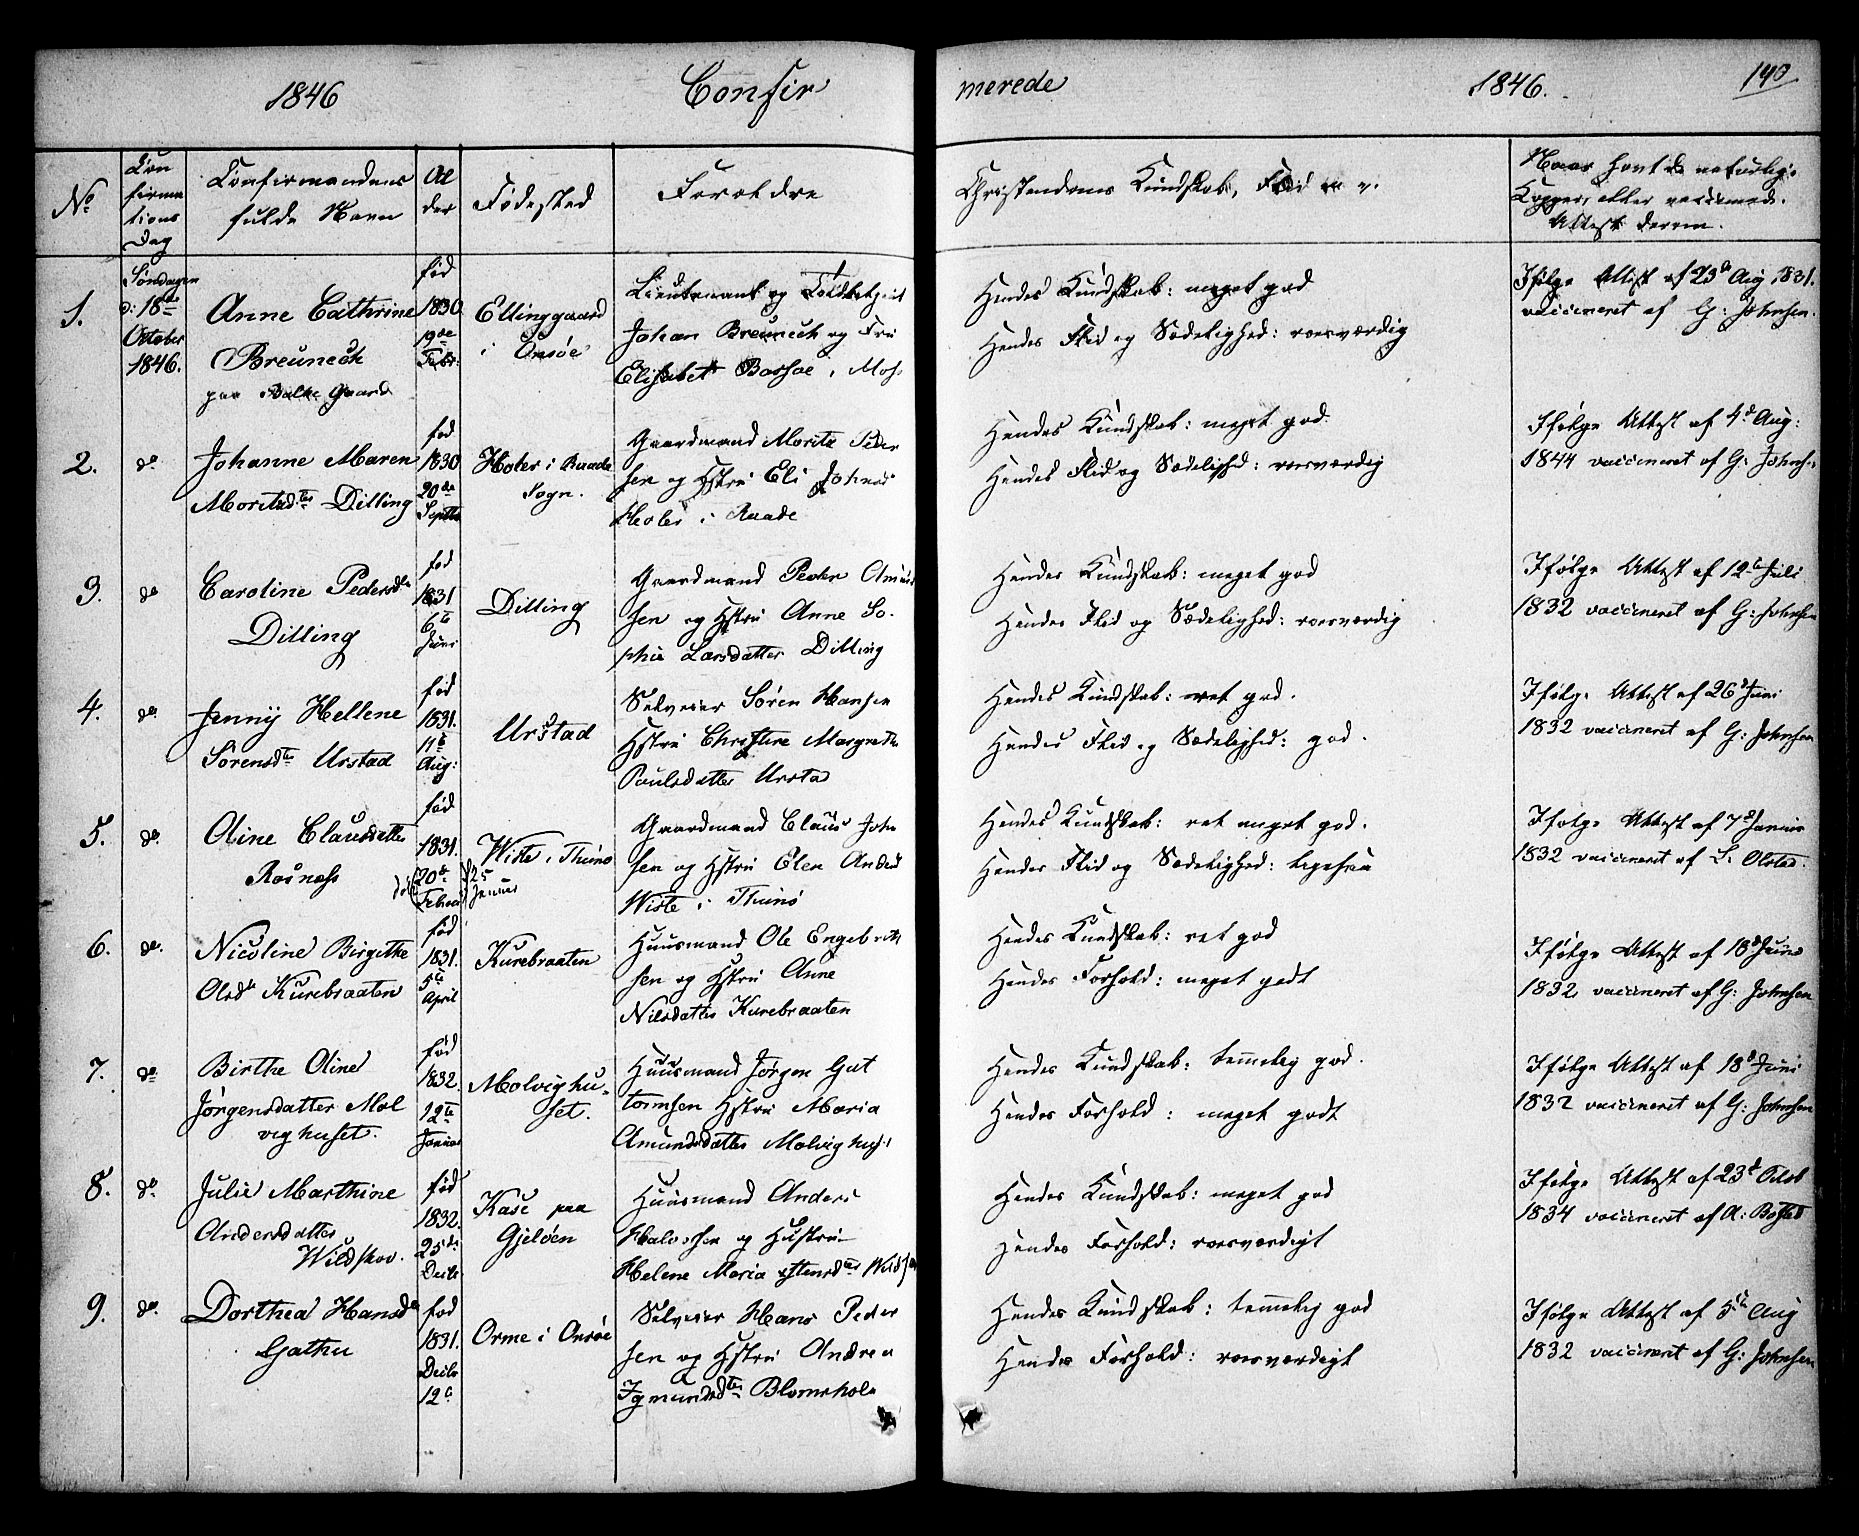 1846 Confir merede 1846. 140
No
Con
firma
tions
Dag
Confirmandens
fulde Navn
Al
der
Fødested
Forældre
Christendoms Kundskab, Flid
Naar havt de naturlige
Kopper, eller vaccinered.
Attest derom.
1.
Søndagen
d: 18de
October
1846.
Anne Cathrine
Breunech
paa Balke Gaard
fød
1830
19de
Febr:
Ellinggaard
i Onsøe
Lieutenant og
Johan Breunech og Fru
Elisabet Bassøe, Moss
Hendes Kundskab: meget god
Hendes Flid og Sædelighed: roesværdig
Ifølge Attest af 23d Aug 1831.
vaccineret af G: Johnsen.
2.
do
Johanne Maren
Moritsdtr Dilling
fød
1830
20de
Septbr
Holer i Raade
Sogn.
Gaardmand Morits Peder
sen og Hstru Eli Johnsd
i Raade
Hendes Kundskab: meget god.
Hendes Flid og Sædelighed: roesværdig
Ifølge Attest af 4d Aug:
1844 vaccineret af G: Johns
3.
do
Caroline Pedersdtr
Dilling
fød
1831
6te
Juni
Dilling
Gaardmand Peder Amund
sen og Hstru Anne So-
phie Larsdatter Dilling
Hendes Kundskab: meget god
Hendes Flid og Sædelighed: roesværdig
Ifølge Attest af 12te Juli
1832 vaccineret af G: Johnsen
4.
do
Jenny Hellene
Sörensdtr Urstad
fød
1831.
11te
Aug:
Urstad
Selveier Sören Hansen
Hstru Christine Margrethe
Poulsdatter Ursta
Hendes Kundskab: ret god.
Hendes Flid og Sædelighed: god.
Ifølge Attest af 26d Juni
1832 vaccineret af G: Johnsen
5.
do
Oline Clausdatter
Rosnæss
fød
1831.
20de
Februar
25
Januar
Wiste i Thunø
Gaardmand Claus Joha
sen og Hstru Elen Andersd
Wiste i Thunø
Hendes Kundskab: ret meget god.
Hendes Flid og Sædelighed: ligesaa
Ifølge Attest af 7d Januar
1832 vaccineret af L. Olsted.
6.
do
Nicoline Birgitte
Olsdtr Kurebraaten
fød
1831.
5te
April
Kurebraaten
Huusmand Ole Engebreth
sen og Hstru Anne
Nilsdatter Kurebraaten
Hendes Kundskab: ret god
Hendes Forhold: meget godt
Ifølge Attest af 18d Juni
1832 vaccineret af G: Johnsen
7.
do
Birthe Oline
Jörgensdatter Mol
vighuset.
fød
1832.
12te
Januar
Molvighu-
set.
Huusmand Jørgen Gut
tormsen Hstru Maria
Amundsdatter Molvighus
Hendes Kundskab: temelig god.
Hendes Forhold: meget godt
Ifølge Attest af 18d Juni
1832 vaccineret af G: Johnsen
8.
do
Julie Marthine
Andersdatter
Wildskov.
fød
1832.
25de
Decbr
Kase paa
Gjelöen
Huusmand Anders
Halvorsen og Hustru
Helene Maria Wildskov
Hendes Kundskab: meget god
Hendes Forhold: roesværdigt
Ifølge Attest af 23d Octob
1834 vaccineret af A: Bosted
9.
do
Dorthea Hansdtr
Gathu
fød
1831.
Decbr
12te
Orme i Onsøe
Selveier Hans Peder
sen og Hstru Andrea
Blomsholm
Hendes Kundskab: temelig god
Hendes Forhold: roesværdigt
Ifølge Attest af 5te Aug
1832 vaccineret af G: Johnsen